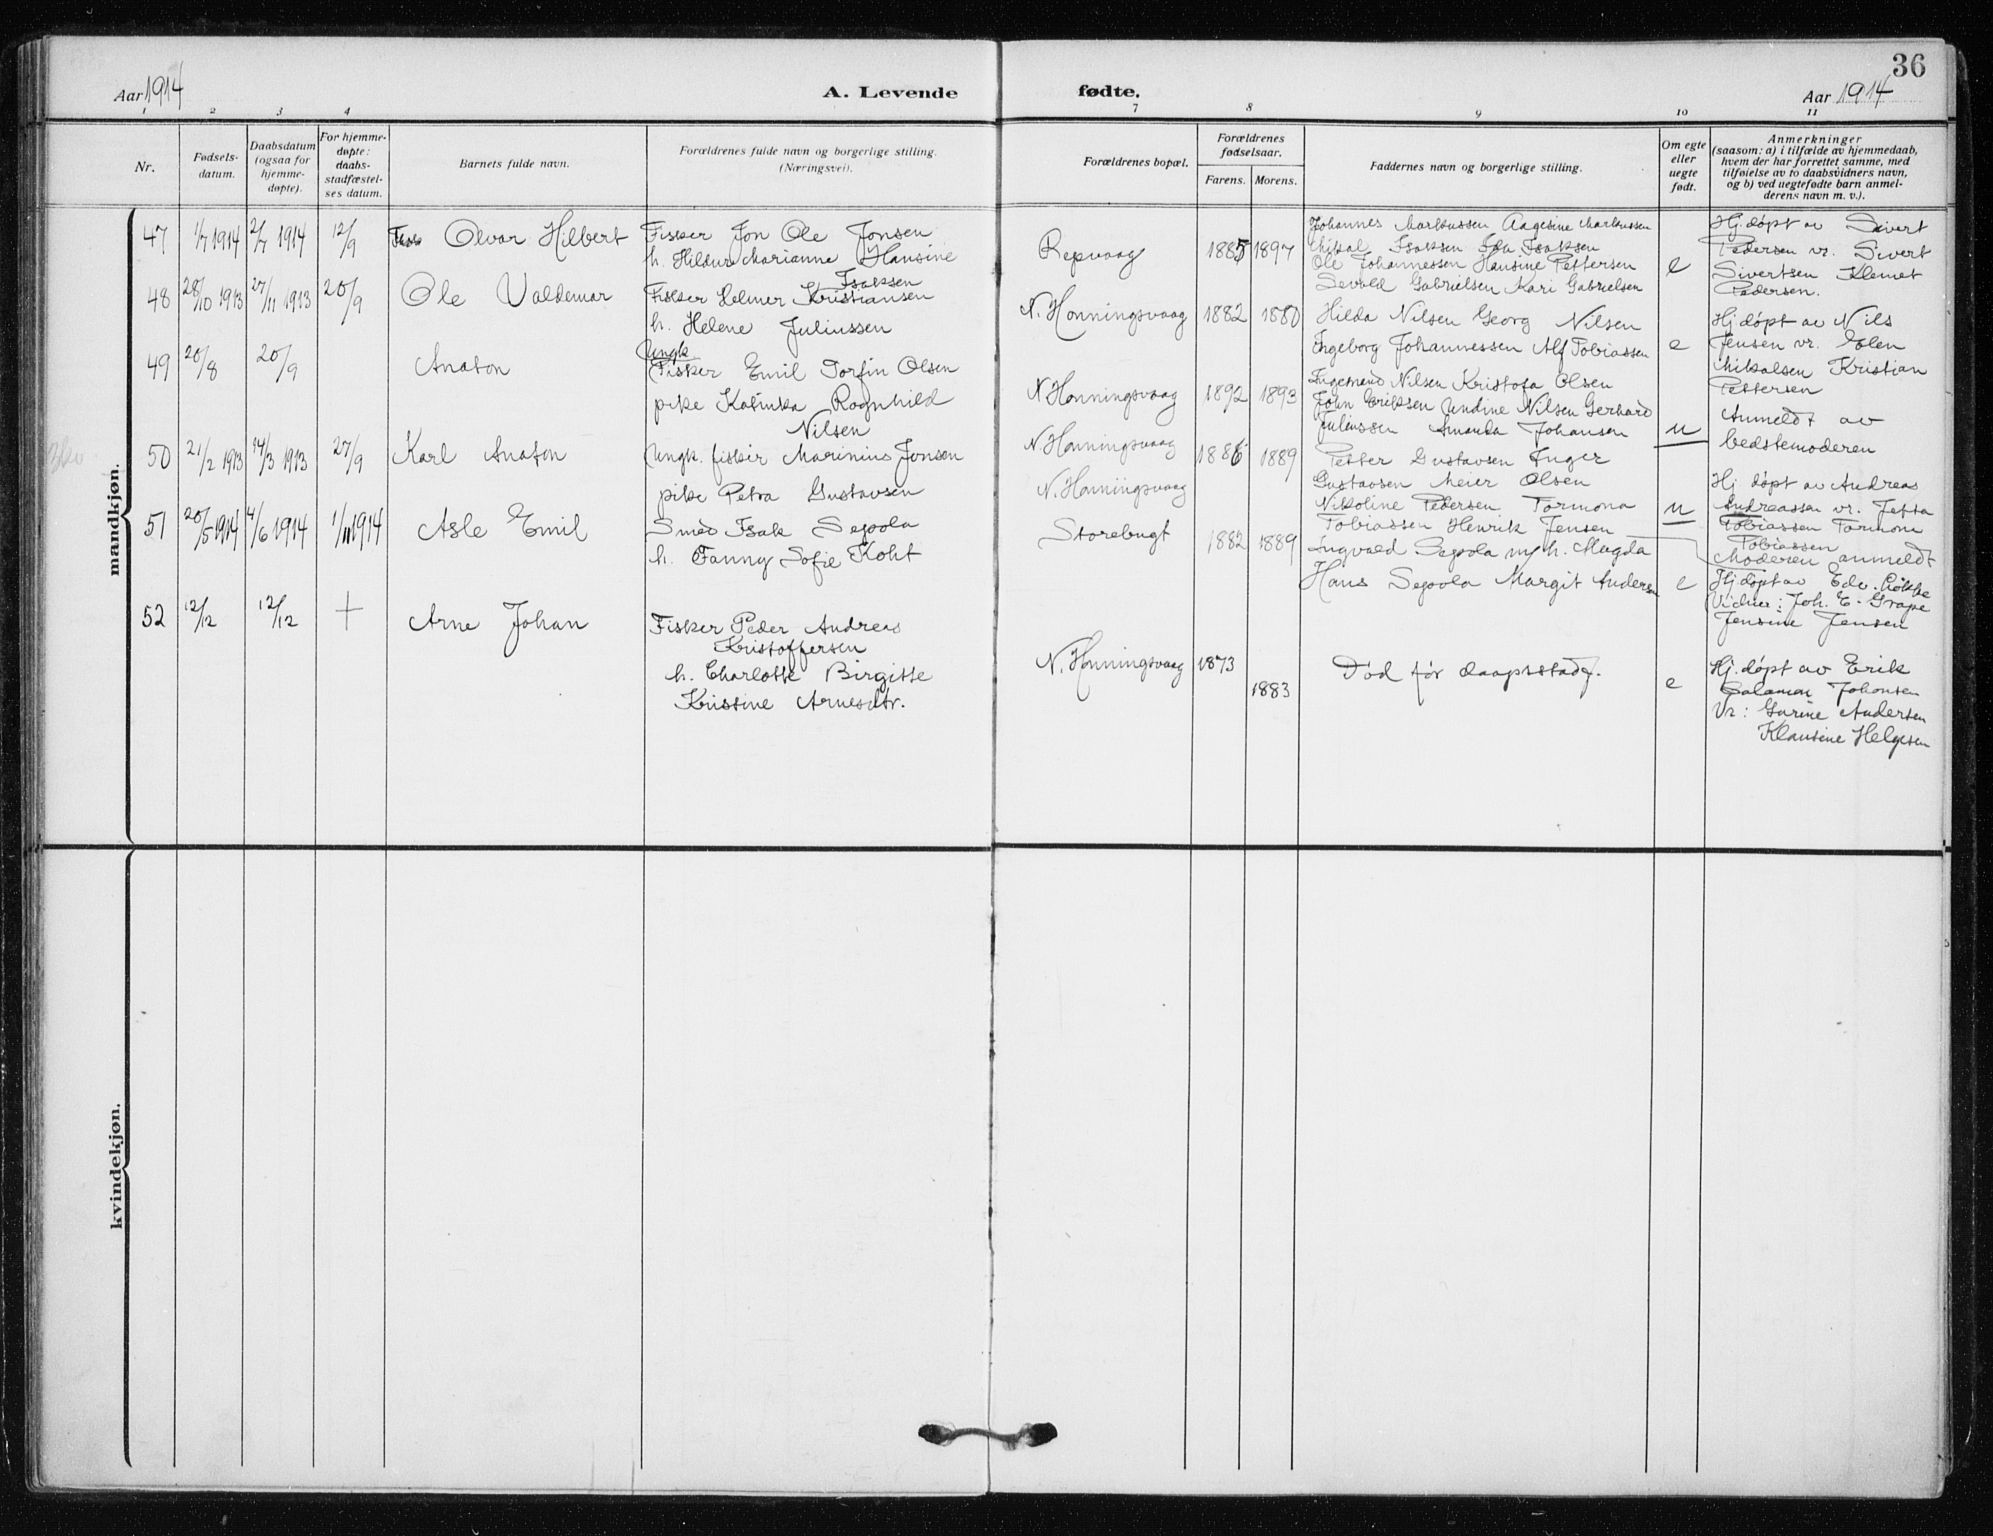 36
Aar 1914
A. Levende
fødte.
Aar 1914
1 2 3 4 7 8 9 10 11
Nr.
Fødsels-
datum.
Daabsdatum
(ogsaa for
hjemme-
døpte).
For hjemme-
døpte:
daabs-
stadfæstel-
ses datum.
Barnets fulde navn.
Forældrenes fulde navn og borgerlige stilling.
(Næringsvei).
Forældrenes bopæl.
Forældrenes
fødselsaar.
Farens. Morens.
Faddernes navn og borgerlige stilling.
Om egte
eller
uegte
født.
Anmerkninger
(saasom: a) i tilfælde av hjemmedaab,
hvem der har forrettet samme, med
tilføielse av to daabsvidners navn,
og b) ved uegtefødte barn anmel-
derens navn m. v.).
mandkjøn.
47 1/7 1914 2/7 1914 12/9 Olvar Hilbert
Fisker Jon Ole Jonsen
h. Hildur Marianne Hansine
Isaksen
Repvaag 1885 1897
Johannes Markussen Aagesine Markussen
Mikal Isaksen Ida Isaksen
Ole Johannessen Hansine Pettersen
Sevald Gabrielsen Kari Gabrielsen
e
Hj. døpt av Sivert
Pedersen vr. Sivert
Sivertsen Klemet
Pedersen.
48 28/10 1913 27/11 1913 20/9 Ole Valdemar
Fisker Helmer Kristiansen
h. Helene Juliussen
N. Honningsvaag 1882 1880
Hilda Nilsen Georg Nilsen
Ingeborg Johannessen Alf Tobiassen
e
Hj døpt av Nils
Jensen vr. Elen
Mikalsen Kristian
Pettersen
49 20/8 20/9 Anaton
Ungk.
Fisker Emil Torfin Olsen
pike Katinka Ragnhild
Nilsen
N. Honningsvaag 1892 1893
Ingemand Nilsen Kristofa Olsen
John Eriksen Undine Nilsen Gerhard
Juliussen Amanda Johansen
u
Anmeldt av
bedstemoderen
50 21/2 1913 14/3 1913 27/9 Karl Anaton
Ungk. fisker Marinius Jonsen
pike Petra Gustavsen
N. Honningsvaag 1886 1889
N. Honningsvaag
Petter Gustavsen Inger
Gustavsen Meier Olsen
Nikoline Pedersen Tormona
Tobiassen Henrik Jensen
u
Hj. døpt av Andreas
Andreassen vr. Jetta
Tobiassen Tormona
Tobiassen
Moderen anmeldt
51 20/5 1914 4/6 1914 1/11 1914 Asle Emil
Smed Isak Seppola
h. Fanny Sofie Koht
Storebugt 1882 1889
Ingvald Seppola m/h. Magda
Hans Seppola Margit Andersen
e
Hj. døpt av Edv. Løkke
Vidner: Joh. E. Grape
Jensine Jensen
52 12/12 12/12 + Arne Johan
Fisker Peder Andreas
Kristoffersen
h. Charlotte Birgitte
Kristine Arnesdtr.
N. Honningsvaag 1873
1883
Død før daapsstadf.
e
Hj. døpt av Erik
Salamon Johansen
Vr: Gurine Andersen
Klausine Helgesen
kvindekjøn.